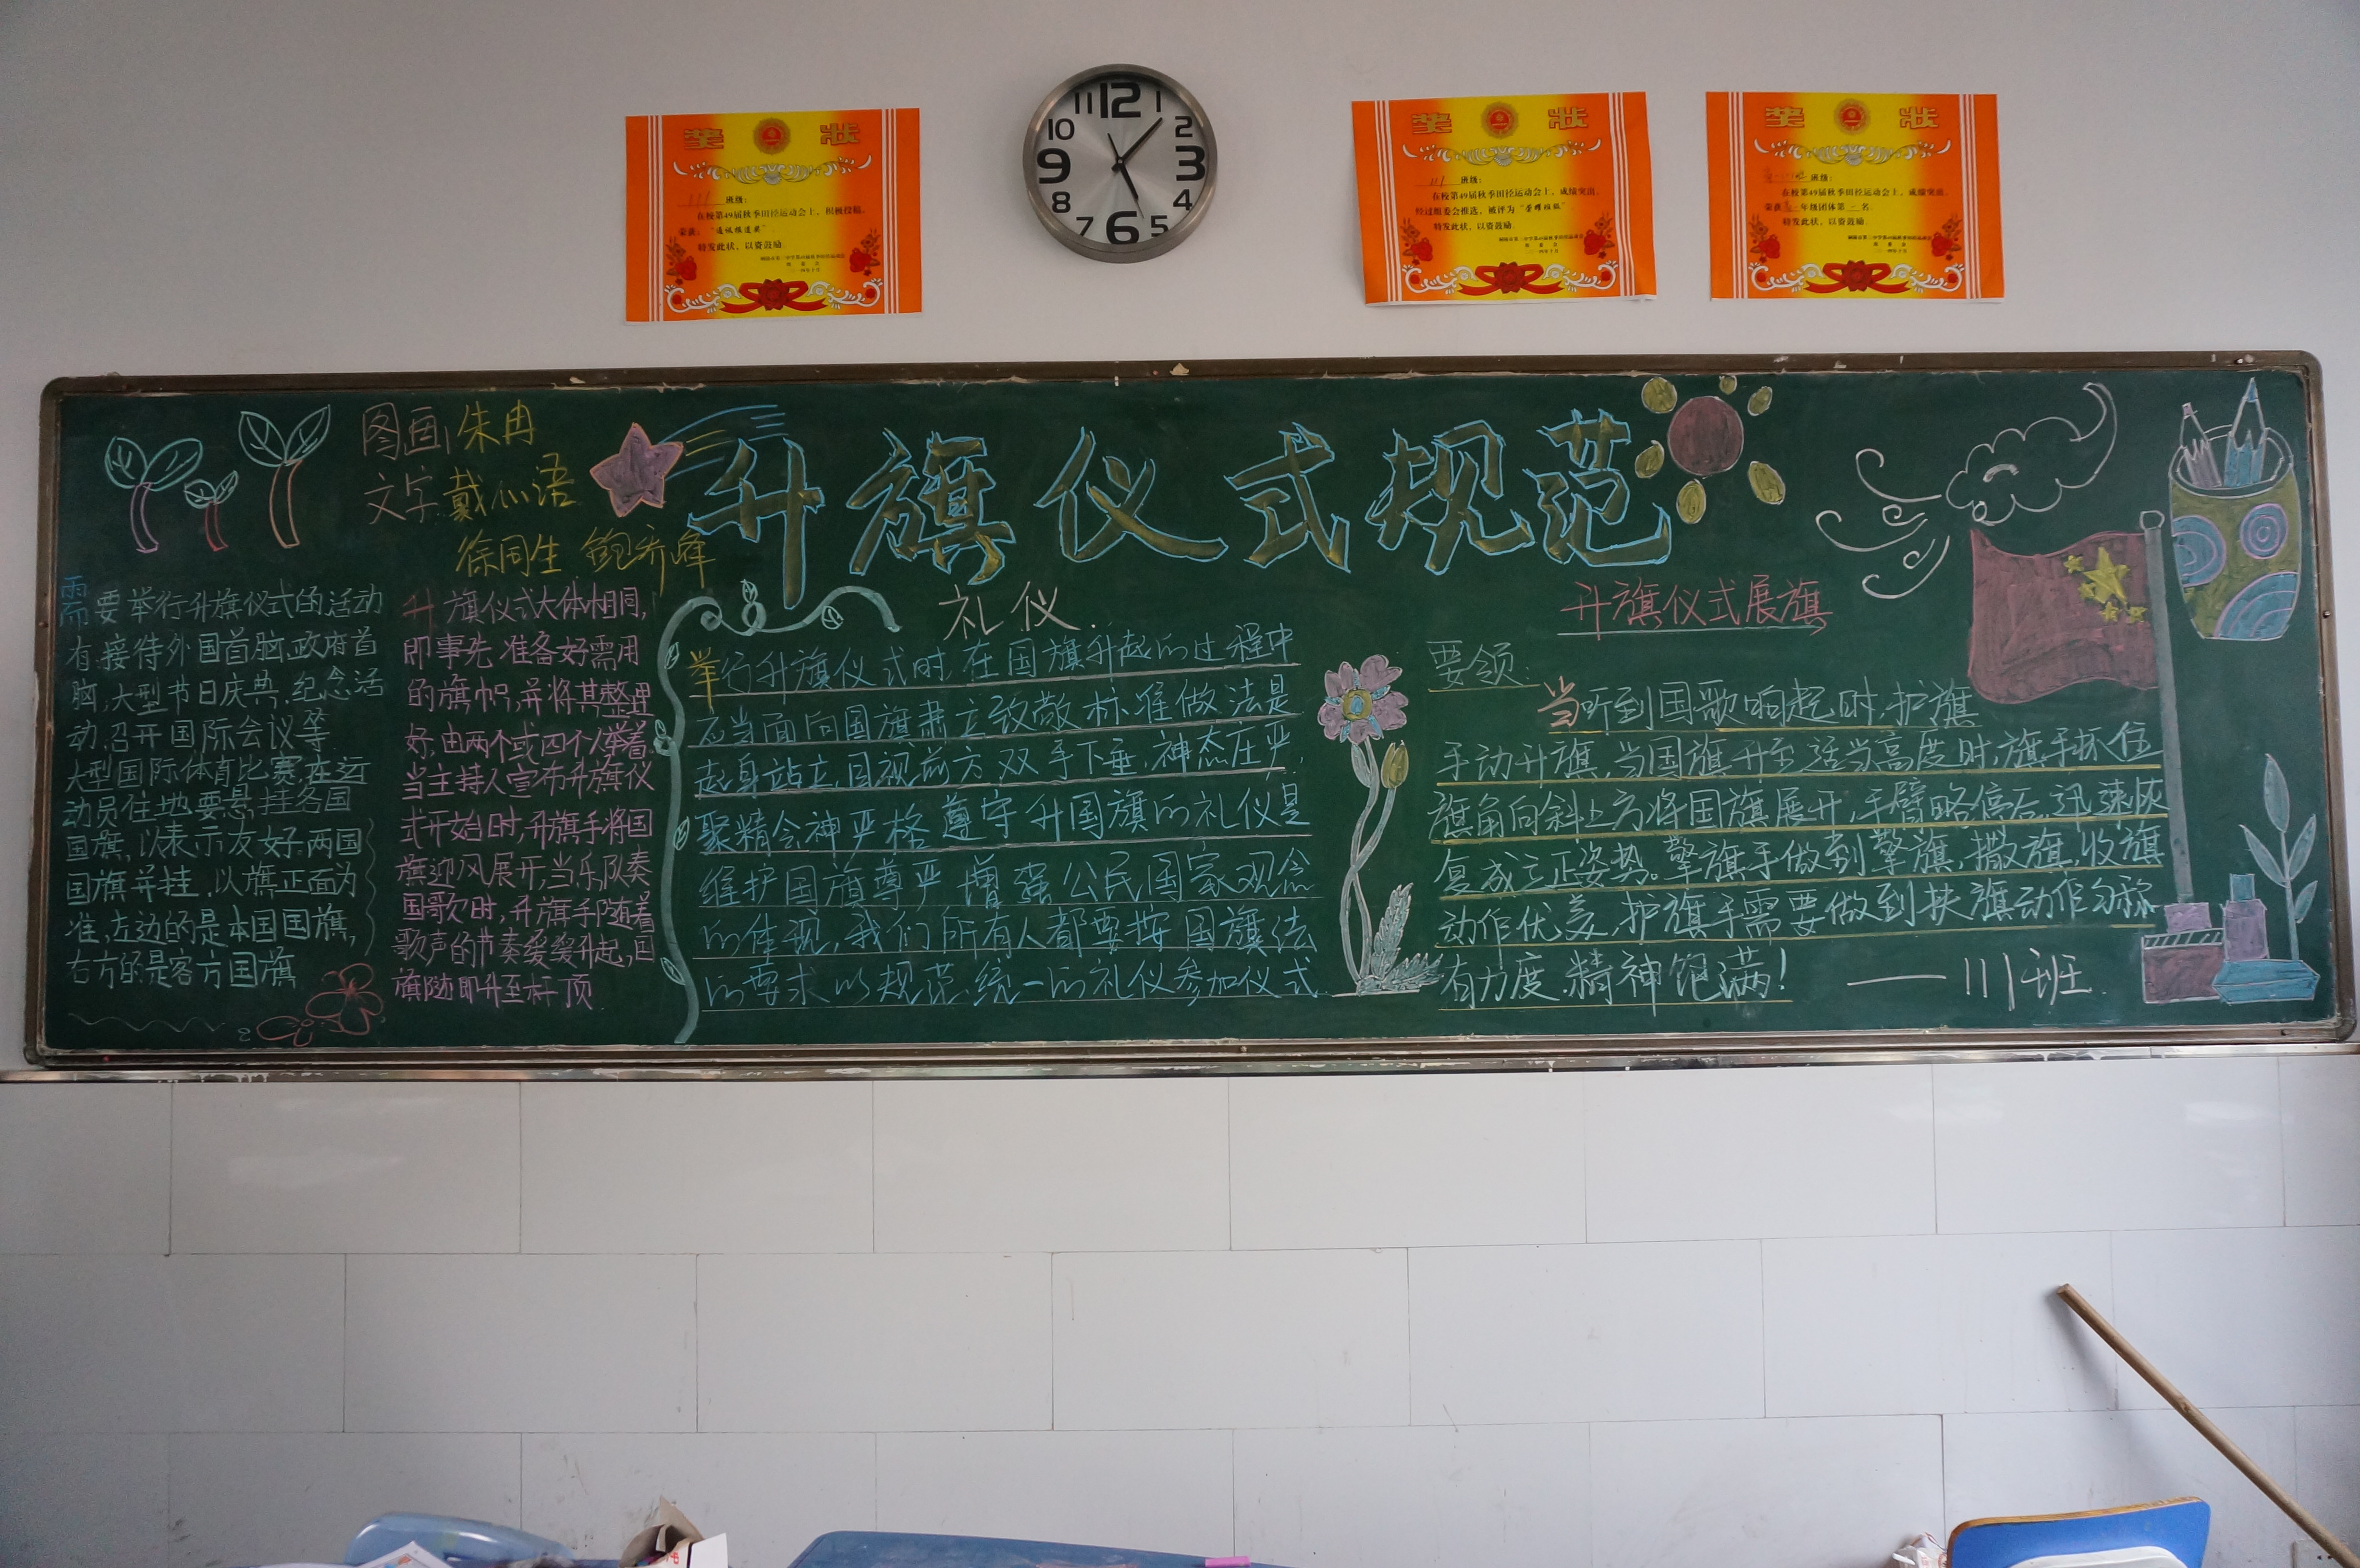 奖 状
111 班级:
在校第49届秋季田径运动会上,积极投稿。
荣获:“通讯报道奖”
特发此状、以资鼓励
11 12 1
10 2
9 3
8 4
7 6 5
奖 状
111 班级:
在校第49届秋季田径运动会上,成绩突出。
经过组委会推选,被评为“荣耀班级”
特发此状、以资鼓励。
奖 状
班级:
在校第49届秋季田径运动会上,成绩突出。
荣获高一年级团体第一名。
特发此状、以资鼓励。
图画 朱冉
文字 戴心语
徐同生 鲍乔峰
升旗仪式规范
需要举行升旗仪式的活动
有:接待外国首脑,政府首
脑,大型节日庆典,纪念活
动,召开国际会议等
大型国际体育比赛,在运
动员住地要悬挂各国
国旗,以表示友好.两国
国旗并挂,以旗正面为
准,左边的是本国国旗,
右方的是客方国旗
升旗仪式大体相同,
即事先准备好需用
的旗帜,并将其整理
好,由两个或四个人举着
当主持人宣布升旗仪
式开始时,升旗手将国
旗迎风展开,当乐队奏
国歌时,升旗手随着
歌声的节奏缓缓升起,国
旗随即升至杆顶
礼仪
举行升旗仪式时,在国旗升起的过程中
应当面向国旗肃立致敬.标准做法是
起身站立,目视前方,双手下垂,神态庄严,
聚精会神.严格遵守升国旗的礼仪是
维护国旗尊严,增强公民国家观念
的体现,我们所有人都要按国旗法
的要求以规范统一的礼仪参加仪式
升旗仪式展旗
要领:
当听到国歌响起时,护旗
手动升旗,当国旗升至适当高度时,旗手抓住
旗角向斜上方将国旗展开,手臂略停后,迅速恢
复成立正姿势。擎旗手做到擎旗,撒旗,收旗
动作优美,护旗手需要做到扶旗动作匀称
有力度,精神饱满!
——111班